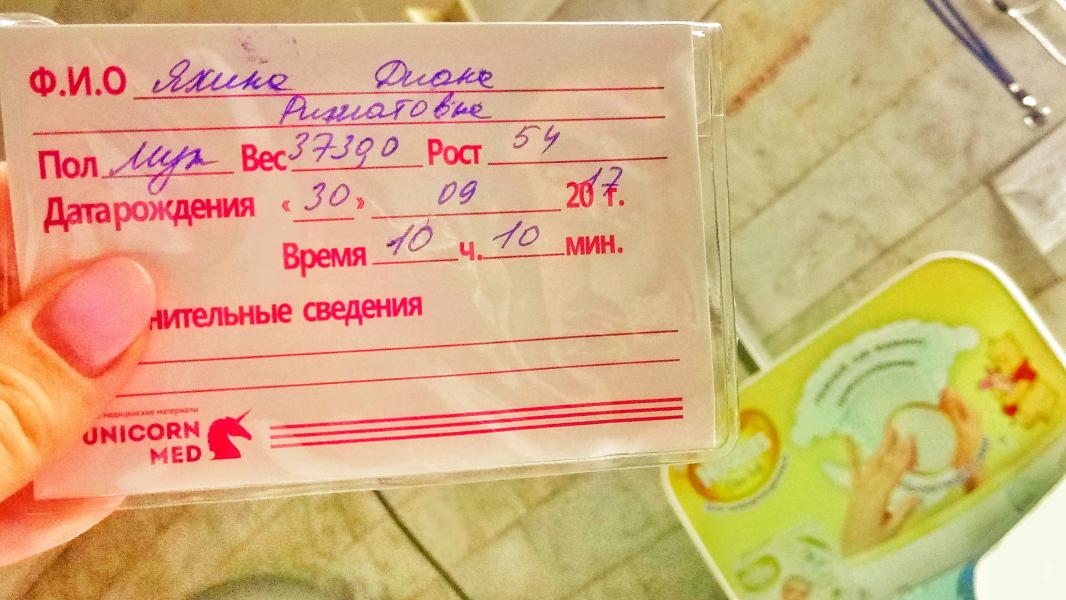 Ф.И.О Яхина Диана
Ришатовна
Пол Муж Вес 37390 Рост 54
Дата рождения « 30 » 09 2017 г.
Время 10 ч. 10 мин.
нительные сведения
медицинские материалы
UNICORN
MED